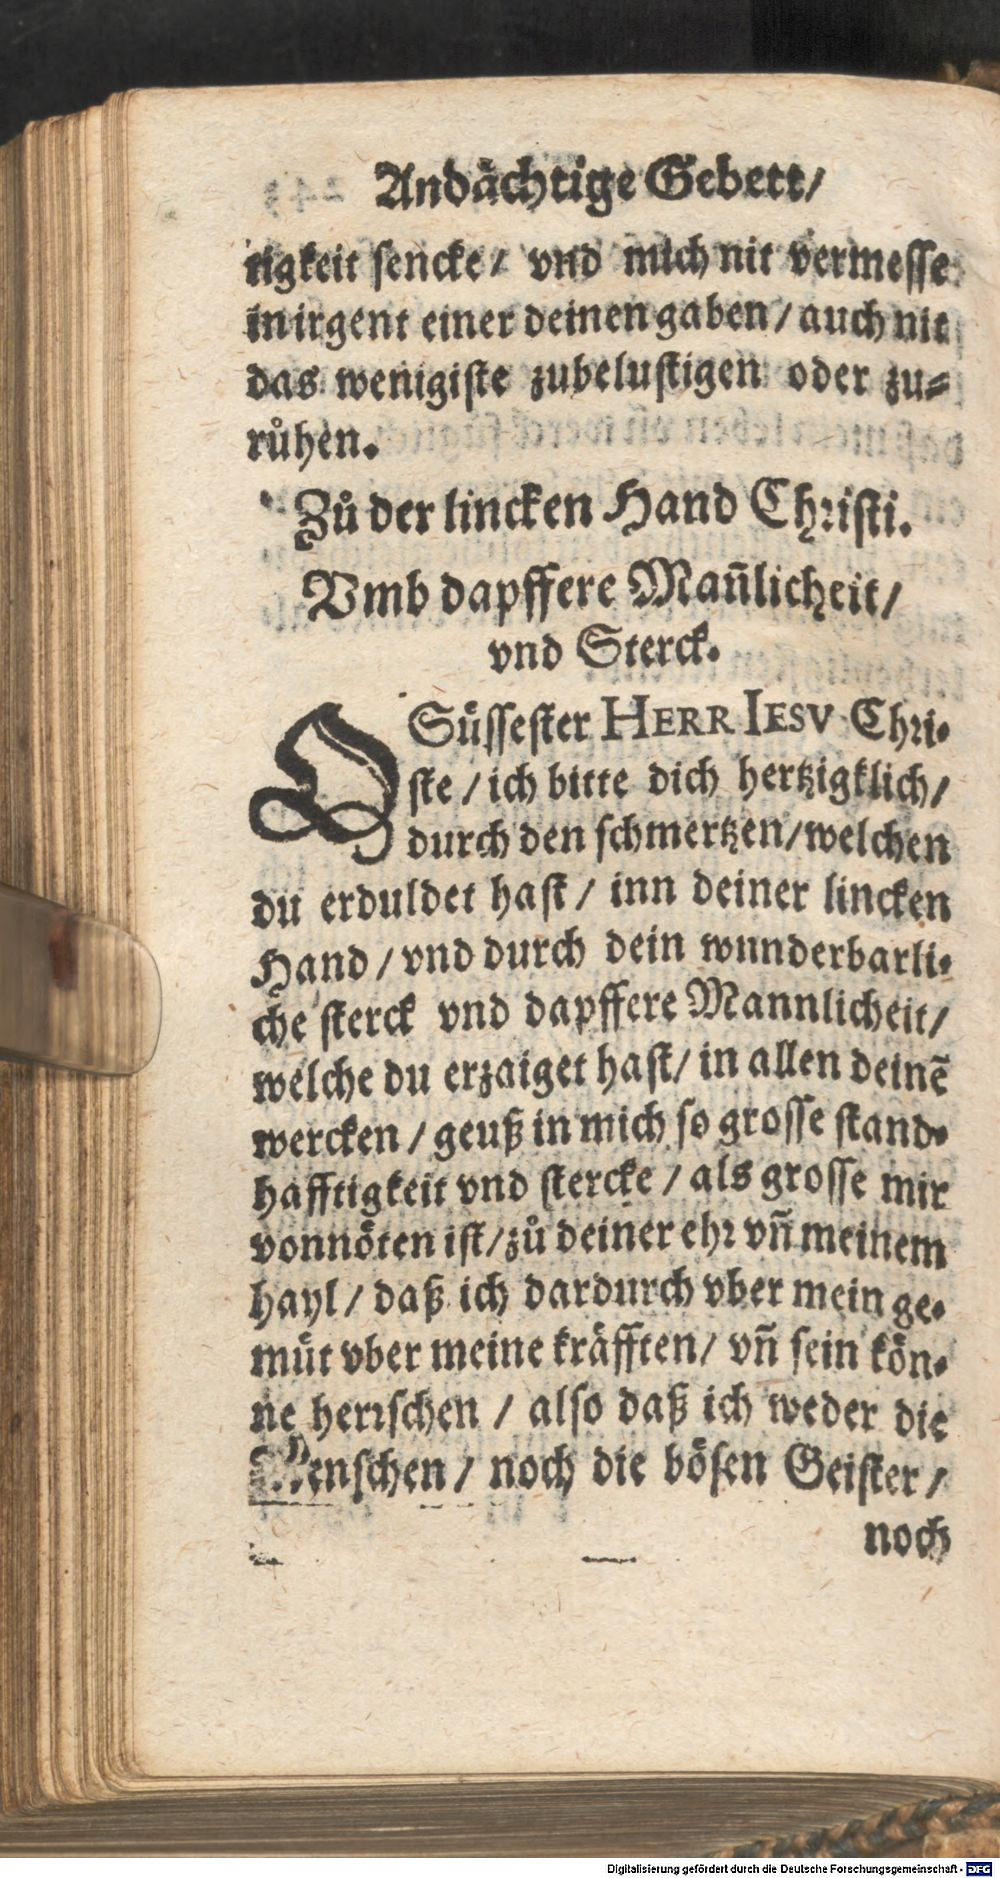 Andächtige Gebett/
tigkeit sencke/ vnd mich nit vermesse
in irgent einer deinen gaben/ auch nit
das wenigiste zubelustigen oder zu⸗
růhen.
Zů der lincken Hand Christi.
Vmb dapffere Mañlicheit/
vnd Sterck.
O Süssester HERR IESV Chri⸗
ste/ ich bitte dich hertzigklich/
durch den schmertzen/ welchen
du erduldet hast/ inn deiner lincken
Hand/ vnd durch dein wunderbarli⸗
che sterck vnd dapffere Mannlicheit/
welche du erzaiget hast/ in allen deinẽ
wercken/ geuß in mich so grosse stand⸗
hafftigkeit vnd stercke/ als grosse mir
vonnöten ist/ zů deiner ehr vñ meinem
hayl/ daß ich dardurch vber mein ge⸗
müt vber meine kräfften/ vñ sein kön⸗
ne herrschen/ also daß ich weder die
Menschen/ noch die bösen Geister/
noch
Digitalisierung gefördert durch die Deutsche Forschungsgemeinschaft - DFG